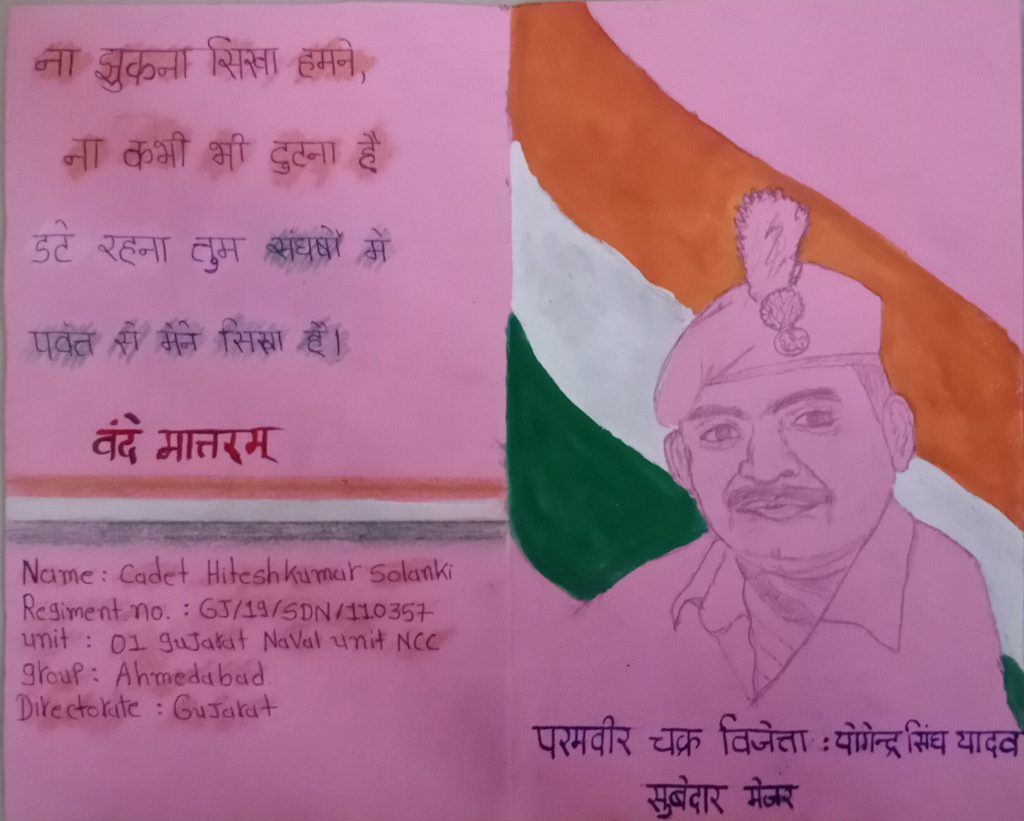 ना झुकना सिखा हमने,
ना कभी भी टुटना है
डटे रहना तुम संघर्षो में
पर्वत से मैंने सिखा हैं।
वंदे मात्तरम्
Name: Cadet Hiteshkumar Solanki
Regiment no. : GJ/19/SDN/110357
unit : 01 gujarat Naval unit NCC
group: Ahmedabad.
Directorate : Gujarat
परमवीर चक्र विजेत्ता : योगेन्द्र सिंघ यादव
सुबेदार मेजर